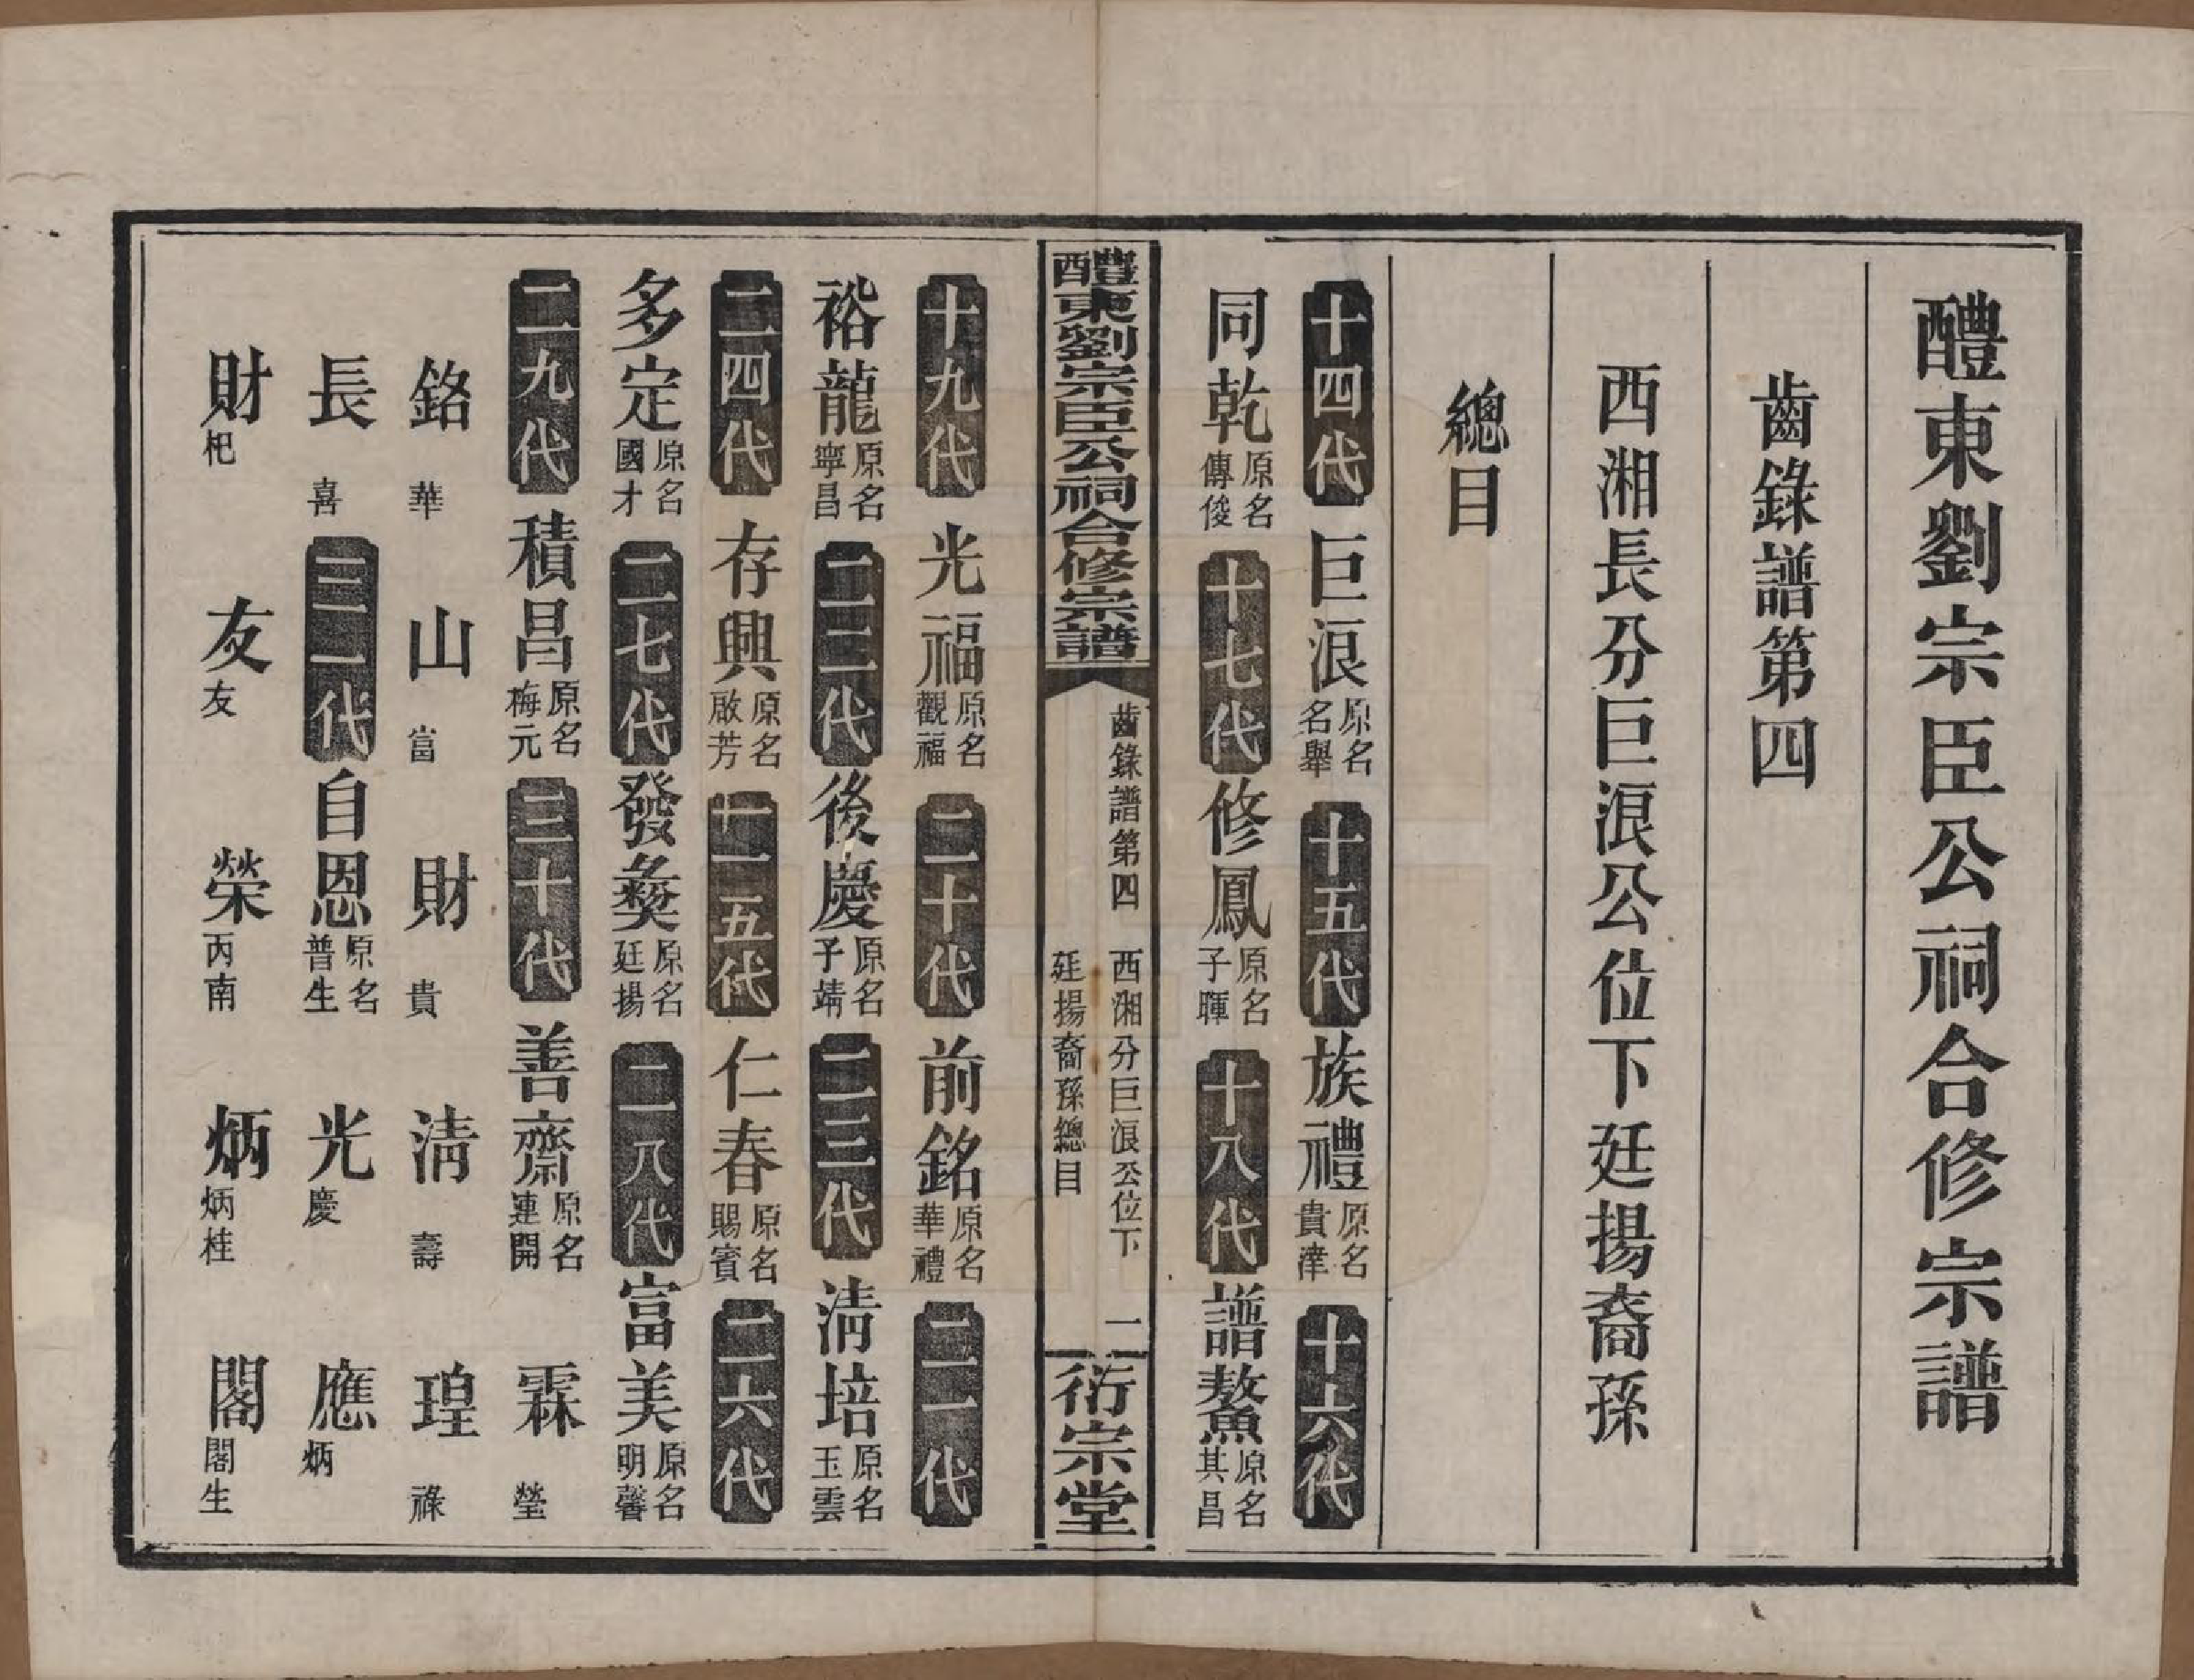 醴東劉宗臣公祠合修宗譜
齒錄譜第四
西湘長分巨浪公位下廷揚裔孫
總目
十四代 巨浪 原名名舉 十五代 族禮 原名貴滓 十六代
同乾 原名傳俊 十七代 修鳳 原名子暉 十八代 譜鰲 原名其昌
醴東劉宗臣公祠合修宗譜 齒錄譜第四 西湘分巨浪公位下 廷揚裔孫總目 一 衍宗堂
十九代 光福 原名觀福 二十代 前銘 原名華禮 二一代
裕龍 原名寧昌 二二代 後慶 原名予靖 二三代 淸培 原名玉雲
二四代 存興 原名啟芳 二五代 仁春 原名賜賓 二六代
多定 原名國才 二七代 發彜 原名廷揚 二八代 富美 原名明馨
二九代 積昌 原名梅元 三十代 善齋 原名連開 霖 瑩
銘 華 山 富 財 貴 淸 壽 瑝 祿
長 喜 三一代 自恩 原名普生 光 慶 應 炳
財 杷 友 友 榮 丙南 炳 炳桂 閣 閣生